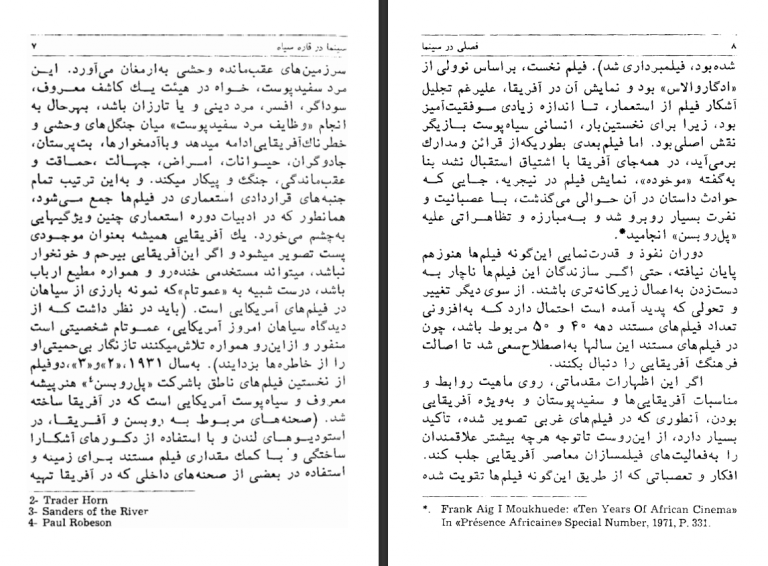 سینما در قاره سیاه ۷
سرزمین‌های عقب‌مانده وحشی به‌ارمغان می‌آورد. ایـن
مرد سفیدپوست، خـواه در هیئت یـك کاشف معـروف،
سوداگر، افسر، مرد دینی و یا تارزان باشد، بهرحال به
انجام «وظایف مرد سفیدپوست» میان جنگل‌های وحشی و
خطرناك‌آفریقایی‌ادامه میدهد وباآدمخوارها، بت‌پرستان،
جادوگران، حیـوانات، امـراض، جهـالت ،حمـاقت و
عقب‌ماندگی، جنگ و پیکار میکند. و به‌این ترتیب تمام
جنبه‌های قراردادی استعماری در فیلم‌ها جمع مـی‌شود،
همانطور که در ادبیات دوره استعماری چنین ویژگیهایی
به‌چشم می‌خورد. یك آفریقایی همیشه بعنوان موجـودی
پست تصویر میشود و اگر این‌آفریقایی بیرحم و خونخوار
نباشد، میتواند مستخدمی خنده‌رو و همواره مطیع ارباب
باشد، درست شبیه به «عموتام»که نمونه بارزی از سیاهان
در فیلم‌های آمریکایی است. (باید در نظر داشت کـه از
دیدگاه سیاهان امروز آمریکایی، عمـوتام شخصیتی است
منفور و ازاین‌رو همواره تلاش‌میکنند تازنگار بی‌حمیتی‌او
را از خاطره‌ها بزدایند). به‌سال ۱۹۳۱، «۲»و«۳»،دوفیلم
از نخستین فیلم‌های ناطق باشرکت «پل‌روبسن۴» هنرپیشه
معروف و سیاه‌پوست آمریکایی است که در آفریقا ساخته
شد. (صحنه‌هـای مربـوط بـه روبسن و آفـریقـا، در
استودیـوهـای لندن و با استفاده از دکـورهای آشکـارا
ساختگی و با کمك مقداری فیلم مستند بـرای زمینه و
استفاده در بعضی از صحنه‌های داخلی که در آفریقا تهیه
2- Trader Horn
3- Sanders of the River
4- Paul Robeson
۸ فصلی در سینما
شده‌بود، فیلمبرداری شد). فیلم نخست، براساس نوولی از
«ادگاروالاس» بود و نمایش آن در آفریقا، علیرغم تجلیل
آشکار فیلم از استعمار، تـا اندازه زیادی مـوفقیت‌آمیز
بود، زیرا برای نخستین‌بار، انسانی سیاه‌پوست بـازیگر
نقش اصلی‌بود. اما فیلم‌بعدی بطوریکه‌از قرائن ومدارك
برمی‌آید، در همه‌جای آفریقا با اشتیاق استقبال نشد بنا
به‌گفته «موخوده»، نمایش فیلم در نیجریه، جـایی کـه
حوادث داستان در آن حـوالی می‌گذشت، بـا عصبـانیت و
نفرت بسیار روبرو شد و بـه‌مبارزه و تظاهـراتی علیه
«پل‌روبسن» انجامید*.
دوران نفوذ و قدرت‌نمایی این‌گونه فیلم‌ها هنوزهم
پایان نیافته، حتی اگـر سازندگان این فیلم‌ها ناچار بـه
دست‌زدن به‌اعمال زیرکانه‌تری باشند. از سوی دیگر تغییر
و تحولی که پدید آمده است احتمال دارد کـه به‌افزونی
تعداد فیلم‌های مستند دهه ۴۰ و ۵۰ مربوط باشد، چون
در فیلم‌های مستند این سالها به‌اصطلاح‌سعی شد تا اصالت
فرهنگ آفریقایی را دنبال بکنند.
اگر این اظهارات مقدماتی، روی ماهیت روابط و
مناسبات آفریقایی‌ها و سفیدپوستان و به‌ویژه آفریقایی
بودن، آنطوری که در فیلم‌های غربی تصویر شده، تأکید
بسیار دارد، از این‌روست تاتوجه هرچه بیشتر علاقمندان
را به‌فعالیت‌های فیلمسازان معاصر آفریقایی جلب کند.
افکار و تعصباتی که از طریق این‌گونه فیلم‌ها تقویت شده
*. Frank Aig I Moukhuede: «Ten Years Of African Cinema»
In «Présence Africaine» Special Number, 1971, P. 331.